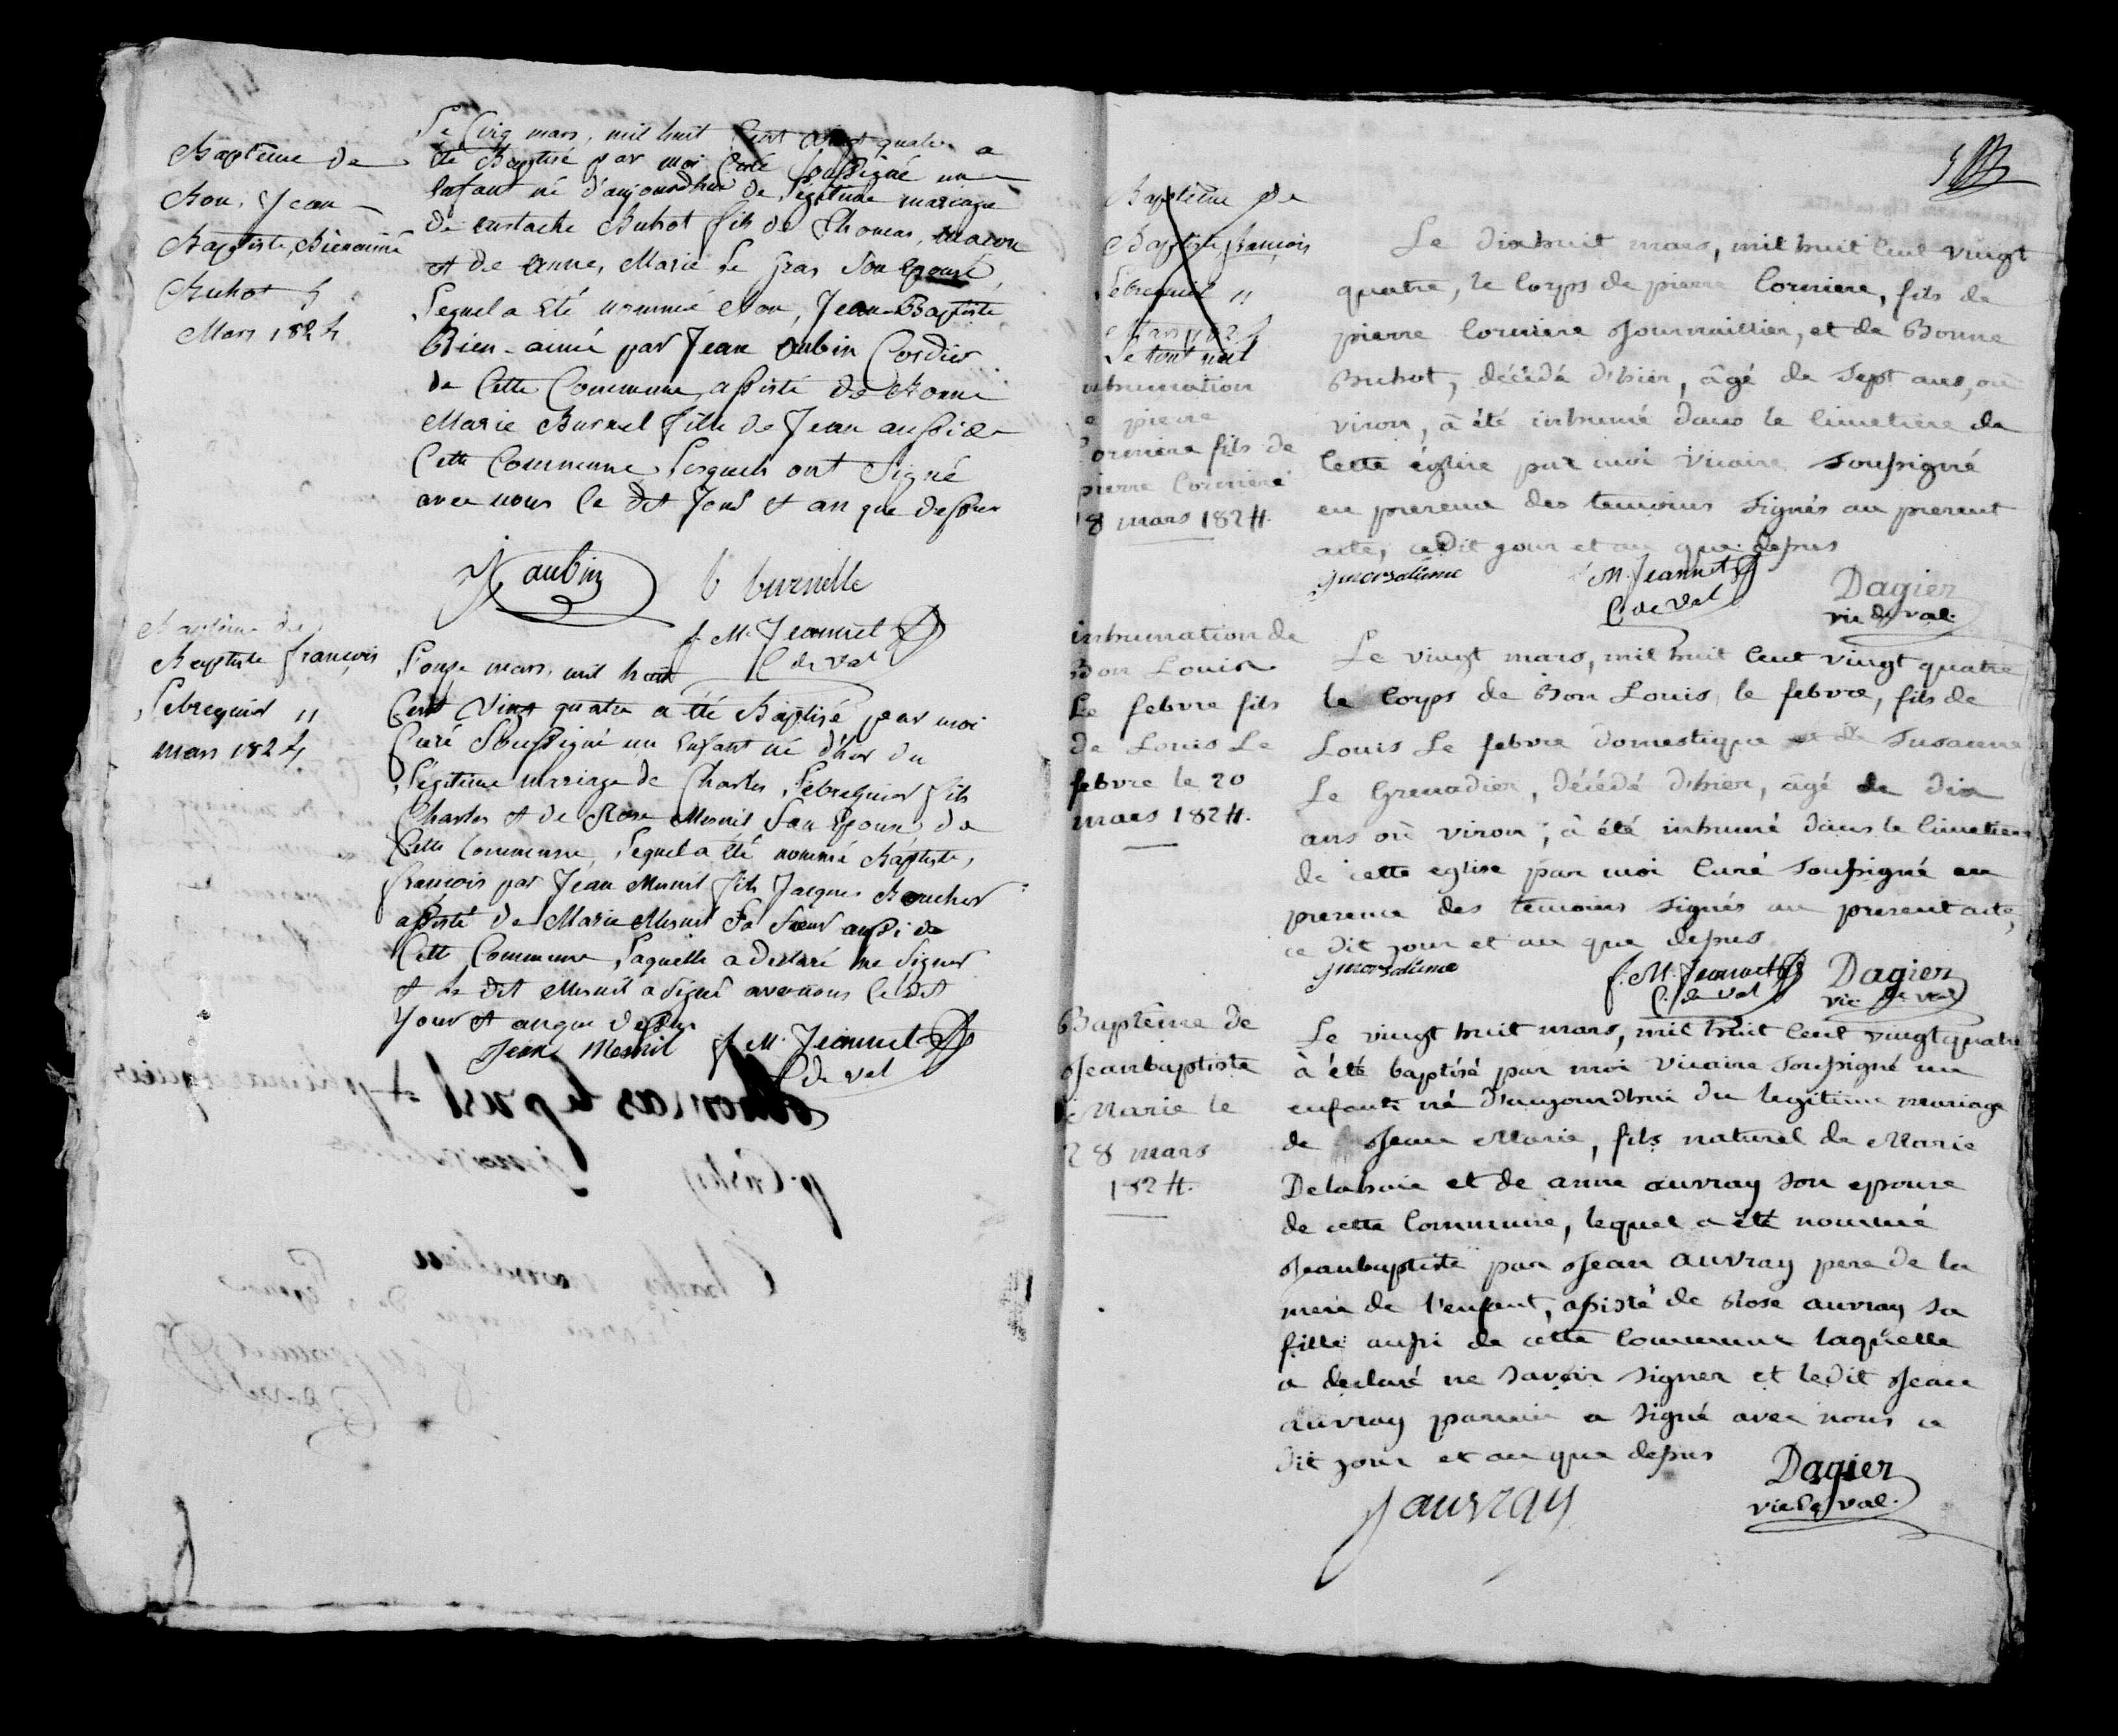 Baptême de
Bon, Jean
Baptiste, Bienaimé
Buhot 5
Mars 1824
Le Cinq mars, mil huit Cent vingt quatre a
été Baptisé par moi Curé soussigné un
Enfant né d'aujourdhui de légitime mariage
de eustache Buhot fils de Thomas, macon
et de anne, Marie Le gras son Epouse,
Lequel a Eté nommé Bon, Jean-Baptiste
Bien-aimé par Jean aubin Cordier
de Cette Commune, assisté de Bonne
Marie Burnel fille de Jean aussi de
Cette Commune, Lesquels ont signé
avec nous le dit Jour et an que dessus
J aubin
b burnelle
f. M. Jeannet
C de val
Baptême de
Baptiste françois
Lebreguier 11
mars 1824
L'onze mars, mil huit
Cent vingt quatre a été Baptisé par moi
Curé Soussigné un Enfant né d'hier du
Légitime mariage de Charles Lebreguier fils
Charles et de Rose Mesnil son Epouse de
Cette Commune, Lequel a été nommé Baptiste,
françois par Jean Mesnil fils Jacques Boucher
assisté de Marie Mesnil Sa Sœur aussi de
Cette Commune, Laquelle a declaré ne Signer
et le dit Mesnil a signé avec nous le dit
Jour et an que dessus
Jean Mesnil
f. M. Jeannet
C de val
Baptême de
Baptiste, françois
Lebreguier 11
Mars 1824
Le tout nul
inhumation
pierre
Corniere fils de
pierre Corniere
18 mars 1824.
Le dixhuit mars, mil huit Cent vingt
quatre, le Corps de pierre Corniere, fils de
pierre Corniere Journaillier, et de Bonne
Buhot, décédé d'hier, âgé de sept ans, ou
viron, à été inhumé dans le Cimetiere de
Cette église par moi Vicaire soussigné
en presence des temoins signés au present
acte, cedit jour et an que dessus
f. M. Jeannet
C. de val
Dagier
vic de val.
inhumation de
Bon Louis
Le febvre fils
de Louis Le
febvre le 20
mars 1824.
Le vingt mars, mil huit Cent vingt quatre
le Corps de Bon Louis, le febvre, fils de
Louis Le febvre Domestique et de Susanne
Le Grenadier, décédé d'hier, âgé de dix
ans ou viron, à été inhumé dans le Cimetiere
de cette eglise par moi Curé soussigné en
presence des temoins signés au present acte,
ce dit jour et an que dessus
f. M. Jeannet
C. de val
Dagier
vic de val
Baptême de
Jeanbaptiste
Marie le
28 mars
1824.
Le vingt huit mars, mil huit Cent vingt quatre
à été baptisé par moi Vicaire soussigné un
enfant né d'aujourdhui du legitime mariage
de Jean Marie, fils naturel de Marie
Delahaie et de anne auvray son epouse
de cette Commune, lequel a été nommé
Jeanbaptiste par Jean auvray pere de la
mere de l'enfant, assisté de Rose auvray sa
fille aussi de cette Commune laquelle
a declaré ne savoir signer et ledit Jean
auvray parrain a signé avec nous ce
dit jour et an que dessus
J auvray
Dagier
vic de val.